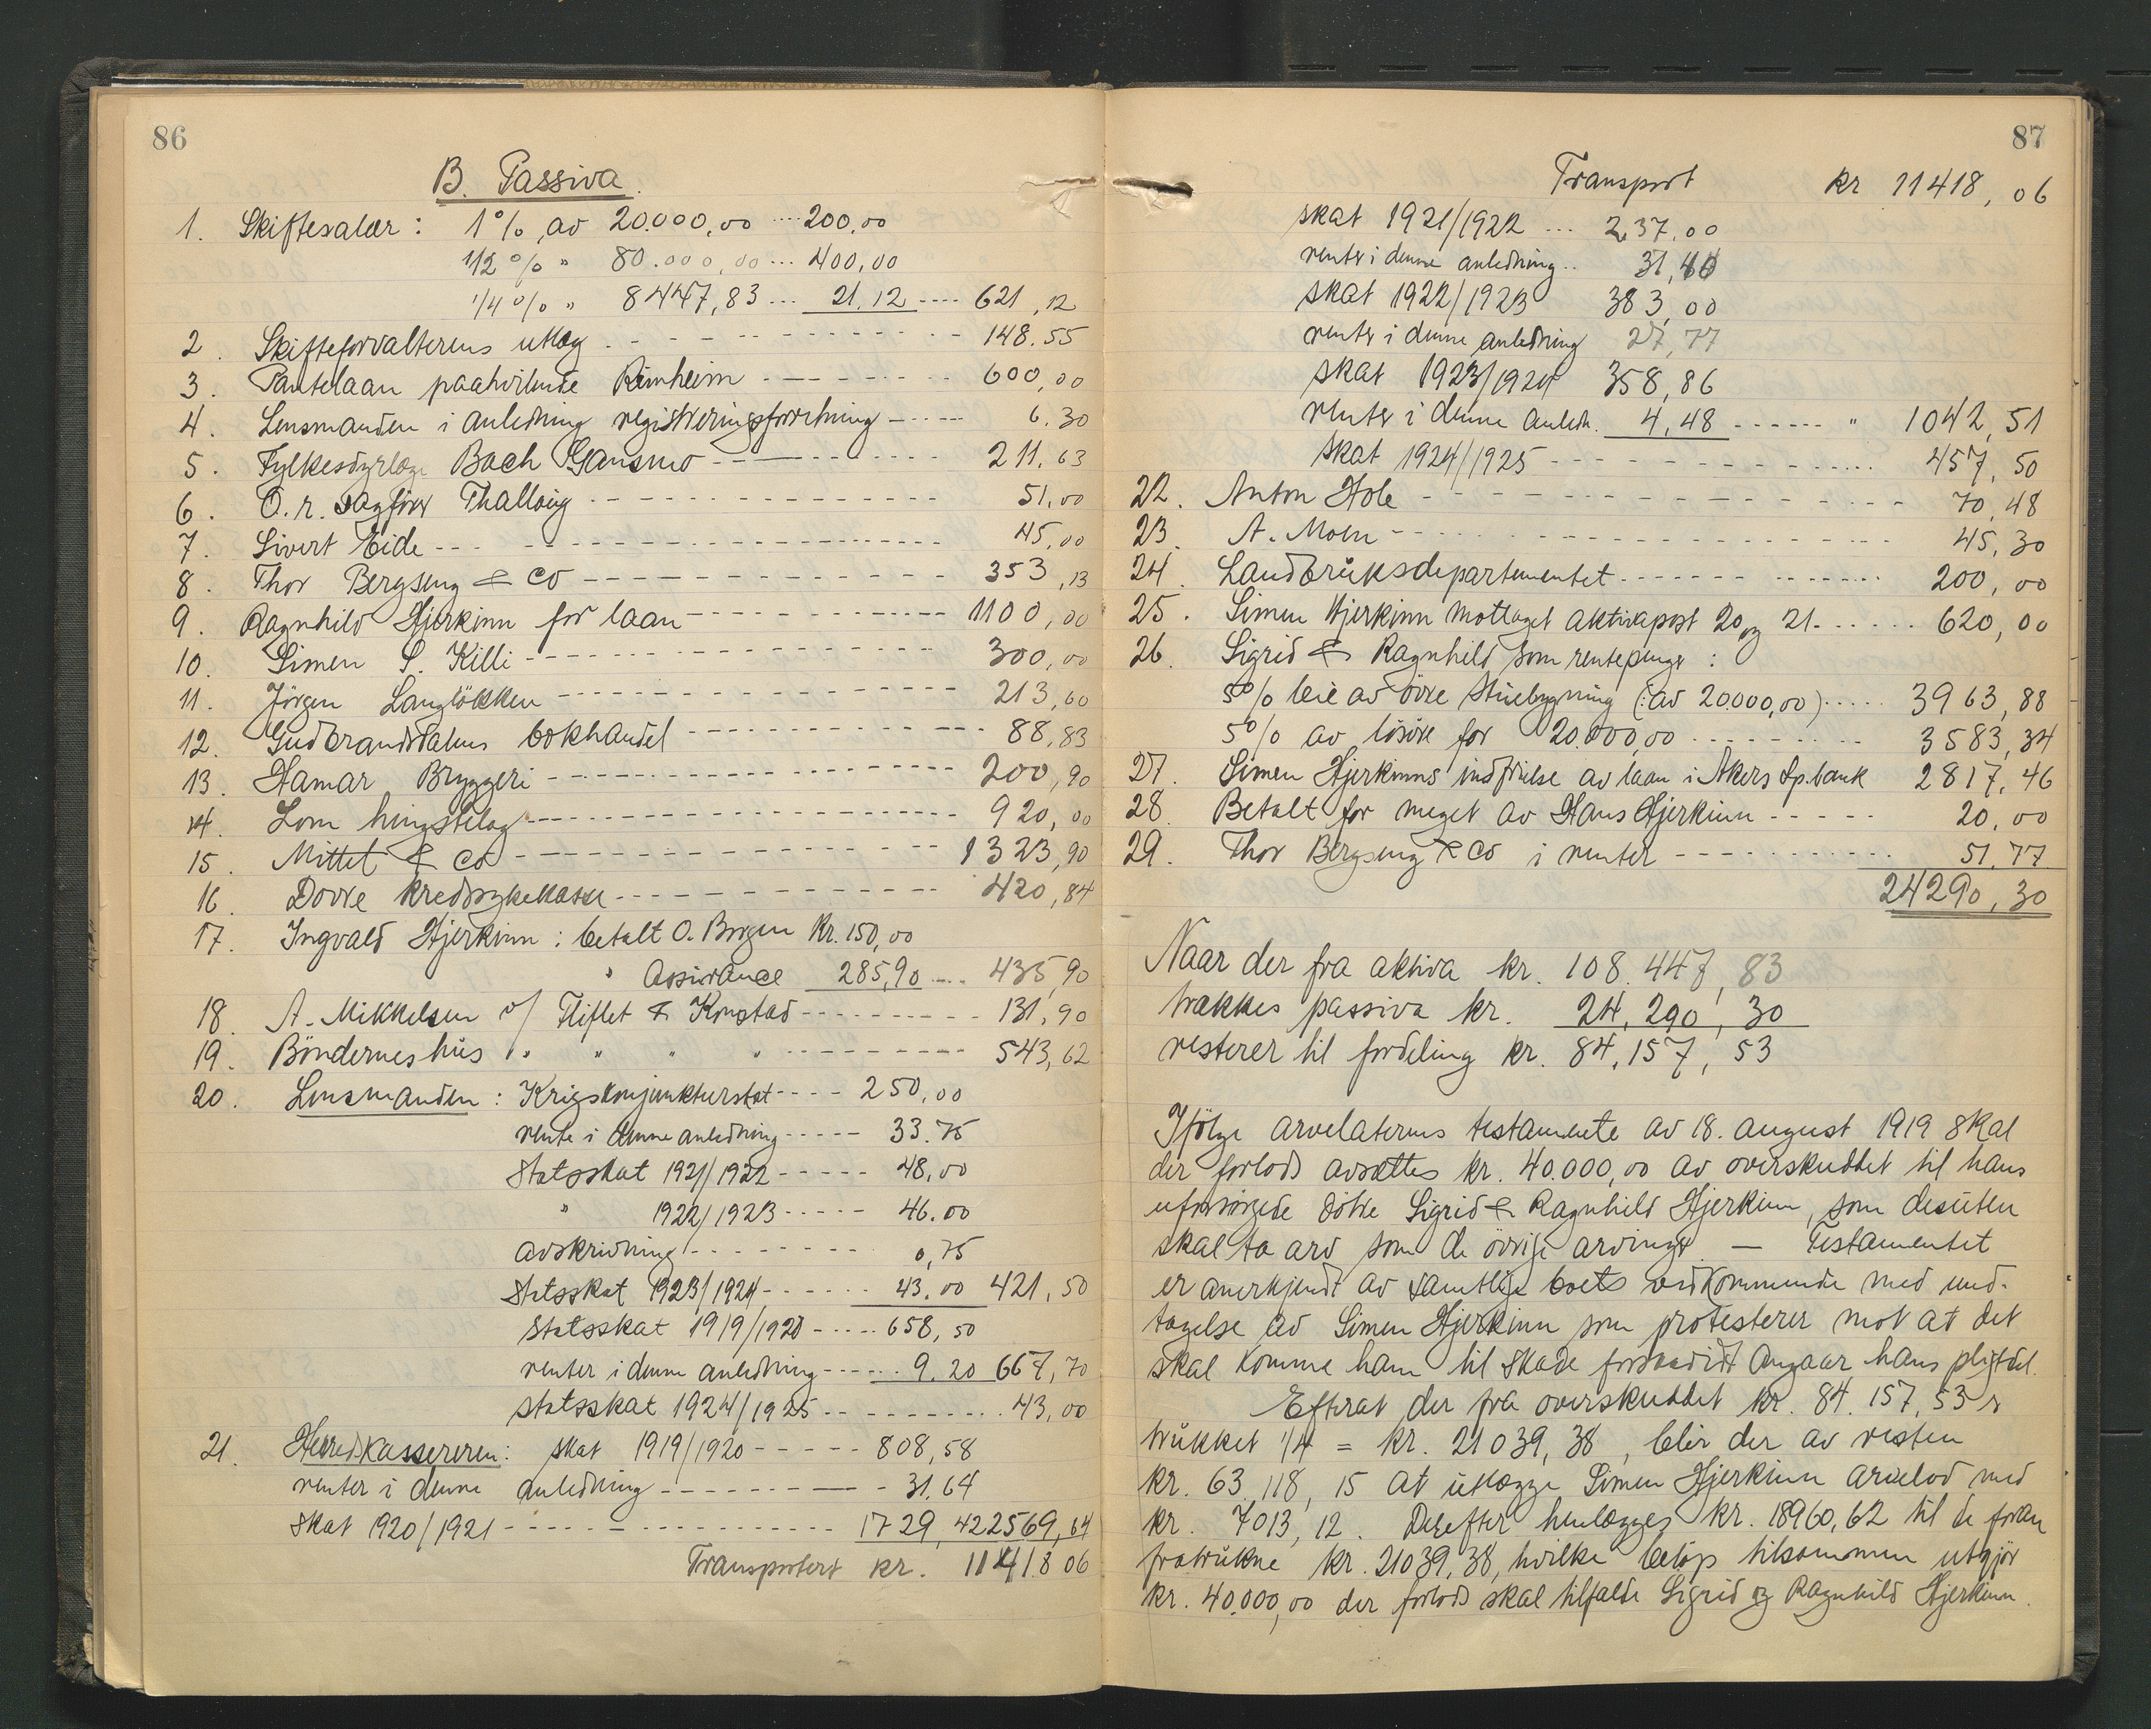 86
B. Passiva.
1. Skiftesalær: 1% av 20.000,00 .... 200,00
1/2 % " 80.000,00 ... 400,00
1/4 % " 8447,83 ... 21,12 ---- 621,12
2. Skifteforvalterens utlæg - - - - - 148.55
3. Pantelaan paahvilende Rimheim - - - - - 600,00
4. Lensmanden i anledning registreringsforretning - - - 6.30
5. Fylkesdyrlæge Bach Gansmo - - - - - 211.63
6. O.r. sagfører Thallaug - - - - - 51.00
7. Sivert Eide - - - - - 45,00
8. Thor Bergseng & Co - - - - - 353,13
9. Ragnhild Hjerkinn for laan - - - - - 1100,00
10. Simen S. Killi - - - - - 300,00
11. Jørgen Langløkken - - - - - 213,60
12. Gudbrandsdalens bokhandel - - - - - 88,83
13. Hamar Bryggeri - - - - - 200,90
14. Lom hingstelag - - - - - 920,00
15. Mittet & Co - - - - - 1323,90
16. Dovre kredssykekasse - - - - - 420,84
17. Ingvald Hjerkinn: betalt O. Borgen kr. 150,00
" Assurance 285,90 .... 435,90
18. A. Mikkelsen v/ Fliflet & Kongstad - - - - - 131,90
19. Bøndernes hus " " " " - - - - - 543,62
20. Lensmanden: Krigskonjunkturskat - - - - 250,00
rente i denne anledning - - - - - 33.75
Statsskat 1921/1922 - - - - - 48,00
" 1922/1923 - - - - - 46.00
avskrivning - - - - - 0,75
Statsskat 1923/1924 - - - - - 43.00 421,50
Statsskat 1919/1920 - - - - - 658,50
renter i denne anledning - - - - - 9.20 667,70
statsskat 1924/1925 - - - - - 43,00
21. Herredskassereren: skat 1919/1920 - - - - - 808,58
renter i denne anledning - - - - - 31.64
skat 1920/1921 - - - - - 1729,42 2569,64
Transportert kr. 11418 06
87
Transport kr 11418,06
skat 1921/1922 ... 237.00
renter i denne anledning .. 31,40
skat 1922/1923 383,00
renter i denne anledning 27,77
skat 1923/1924 358,86
renter i denne anledn. 4,48 - - - - - " 1042,51
skat 1924/1925 - - - - - 457,50
22. Anton Hole - - - - - 70,48
23. A. Moen - - - - - 45,30
24. Landbruksdepartementet - - - - - 200,00
25. Simen Hjerkinn mottaget aktivapost 20 og 21 - - - - - 620,00
26. Sigrid & Ragnhild som rentepenger:
5% leie av øvre stuebygning (: av 20000,00) ..... 3963,88
5% av løsøre for 20.000,00 - - - - - 3583,34
27. Simen Hjerkinns indfrielse av laan i Akers Sp.bank 2817,46
28. Betalt for meget av Hans Hjerkinn - - - - - 20.00
29. Thor Bergseng & Co i renter - - - - - 51,77
24290,30
Naar der fra aktiva kr. 108.447,83
trækkes passiva kr. 24.290,30
resterer til fordeling kr. 84.157,53
Ifølge arvelaterens testamente av 18. august 1919 skal
der forlods avsættes kr. 40.000,00 av overskuddet til hans
uforsørgede døtre Sigrid & Ragnhild Hjerkinn, som desuten
skal ta arv som de øvrige arvinger. — Testamentet
er anerkjendt av samtlige boets vedkommende med und-
tagelse av Simen Hjerkinn som protesterer mot at det
skal komme ham til skade forsaavidt angaar hans pligtdel.
Efterat der fra overskuddet kr. 84.157,53 er
trukket 1/4 = kr. 21039,38, blir der av resten
kr. 63.118,15 at utlægge Simen Hjerkinn arvelod med
kr. 7013,12. Derefter henlægges kr. 18960,62 til de foran
fratrukne kr. 21039,38, hvilke beløp tilsammen utgjør
kr. 40.000,00 der forlods skal tilfalde Sigrid og Ragnhild Hjerkinn.